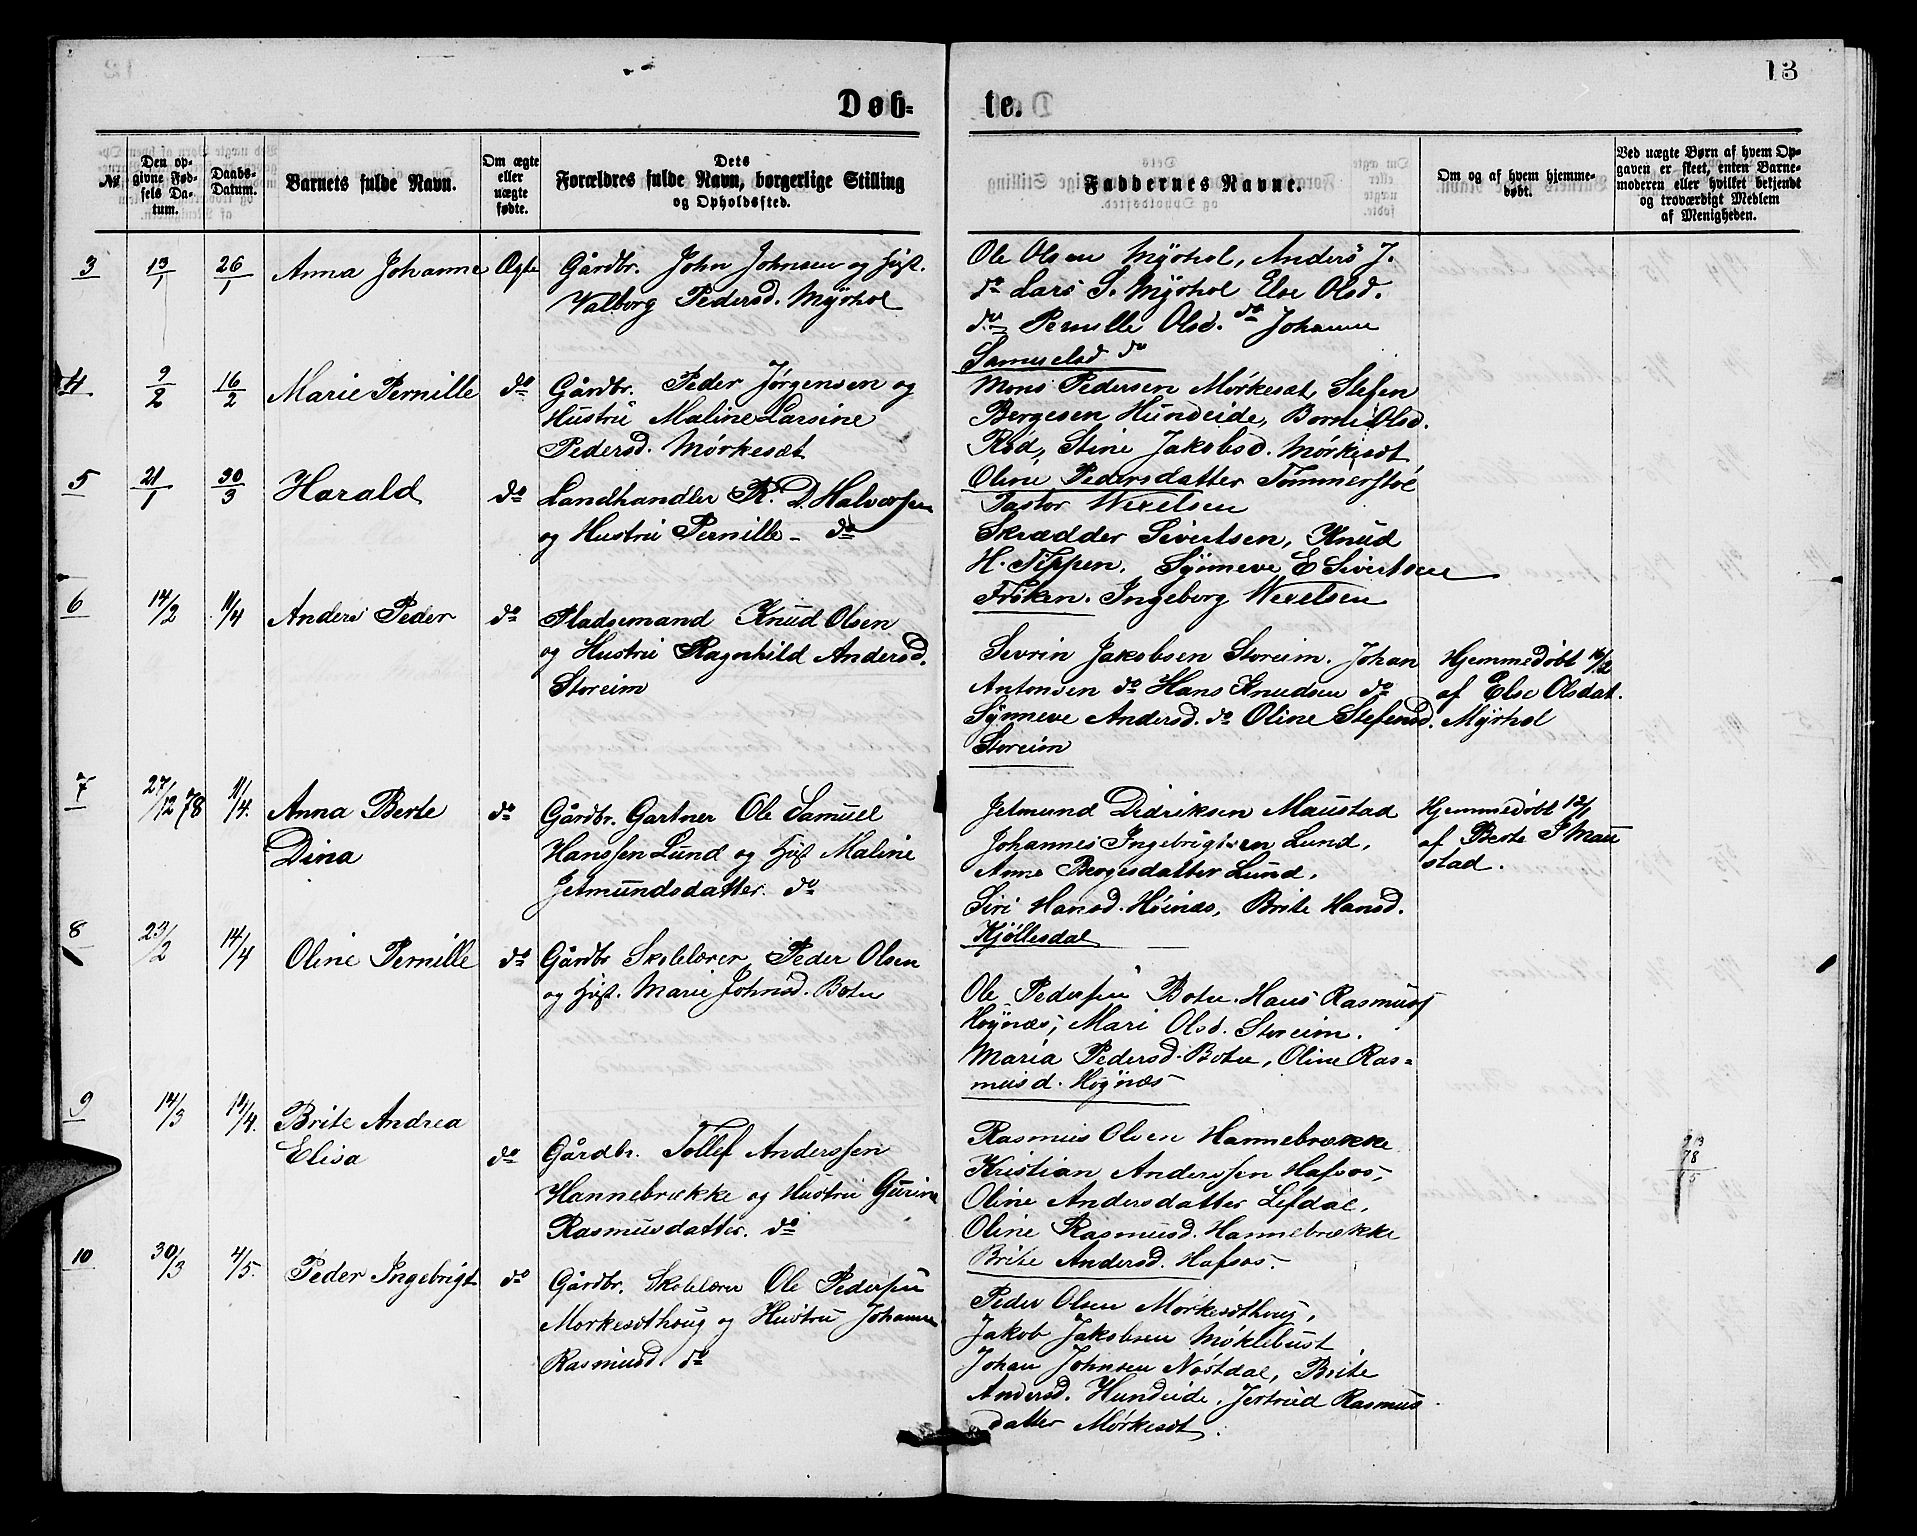 13
Døb-
te.
№
Den op-
givne Fød-
sels Da-
tum.
Daabs-
Datum.
Barnets fulde Navn.
Om ægte
eller
uægte
fødte.
Dets
Forældres fulde Navn, borgerlige Stilling
og Opholdssted.
Faddernes Navne.
Om og af hvem hjemme-
døbt.
Ved uægte Børn af hvem Op-
gaven er skeet, enten Barne-
moderen eller hvilket bekjendt
og troværdigt Medlem
af Menigheden.
3 13/1 26/1 Anna Johanne Ægte Gårdbr. John Johnsen og Hust.
Valborg Pedersd. Myrhol
Ole Olsen Myrhol, Anders J.
do Lars S. Myrhol Else Olsd.
do Pernille Olsd. do Johanne
Samuelsd do
4 9/2 16/2 Marie Pernille do Gårdbr. Peder Jørgensen og
Hustru Maline Larsine
Pedersd. Mørkesæt
Mons Pedersen Mørkesæt, Stefen
Bergesen Hundeide, Olsd.
Rød, Stine Jakobsd. Mørkesæt
Oline Pedersdatter Tømmerstøl
5 21/1 30/3 Harald do Landhandler R. D. Halvorsen
og Hustru Pernille - do
Pastor Wexelsen
Skrædder Sivertsen, Knud
H. Tippen, Synneve E Sivertsen
Frøken. Ingeborg Wexelsen
6 14/2 11/4 Anders Peder do Pladsemand Knud Olsen
og Hustru Ragnhild Andersd.
Storeim
Sevrin Jakobsen Storeim. Johan
Antonsen do Hans Knudsen do
Synneve Andersd. do Oline Stefensd.
Storeim
Hjemmedøbt 16/2
af Else Olsdat.
Myrhol
7 27/12 78 11/4. Anna Berte
Dina
do Gårdbr. Gartner Ole Samuel
Hanssen Lund og Hust Maline
Jetmundsdatter. do
Jetmund Didriksen Maustad
Johannes Ingebrigtsen Lund,
Anne Bergesdatter Lund,
Siri Hansd. Høinæs, Brite Hansd.
Kjøllesdal
Hjemmedøbt 12/1
af Berte J Mau
stad.
8 23/2 14/4 Oline Pernille do Gårdbr Skolelærer Peder Olsen
og Hust. Marie Johnsd. Botn
Ole Pedersen Botn. Hans Rasmuss
Høynæs, Mari Olsd. Storeim.
Maria Pedersd. Botn, Oline Ras-
musd. Høynæs
9 14/3 14/4. Brite Andrea
Elisa
do Gårdbr. Tollef Anderssen
Hannebrække og Hustru Gurine
Rasmusdatter. do
Rasmus Olsen Hannebrække
Kristian Anderssen Hafsos,
Oline Andersdatter Lefdal,
Oline Rasmusd. Hannebrække
Brite Andersd. Hafsos.
913
78
10 30/3 4/5. Peder Ingebrigt do Gårdbr. Skolelærer Ole Pedersen
Mørkesæthoug og Hustru Johanne
Rasmusd. do
Peder Olsen Mørkesæthoug,
Jakob Jakobsen Møklebust
Johan Johnsen Nøstdal, Brite
Andersd. Hundeide, Jertrud Rasmus
datter Mørkesæt.